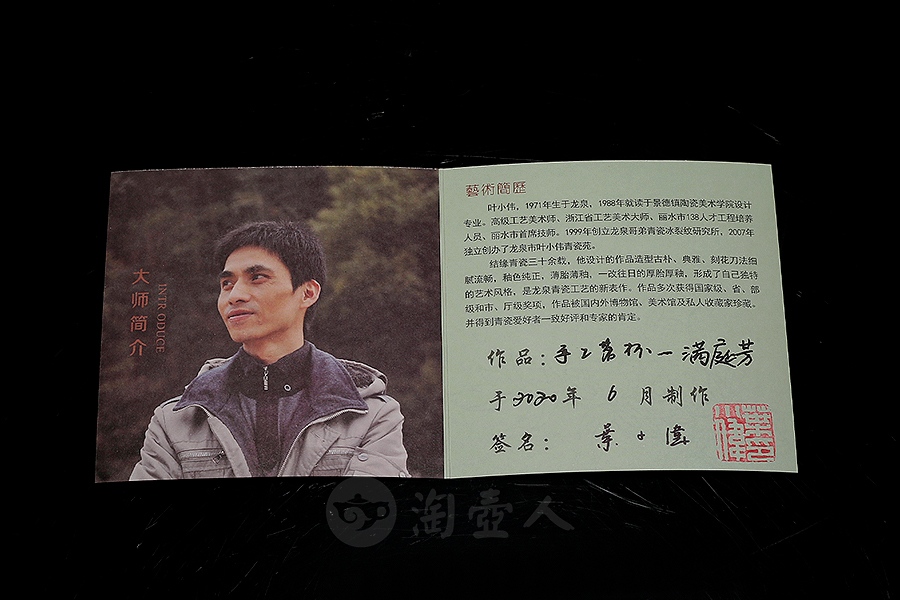 大师简介
INTRODUCE
藝術簡歷
叶小伟，1971年生于龙泉，1988年就读于景德镇陶瓷美术学院设计
专业。高级工艺美术师、浙江省工艺美术大师、丽水市138人才工程培养
人员、丽水市首席技师。1999年创立龙泉哥弟青瓷冰裂纹研究所，2007年
独立创办了龙泉市叶小伟青瓷苑。
结缘青瓷三十余载，他设计的作品造型古朴、典雅、刻花刀法细
腻流畅，釉色纯正，薄胎薄釉，一改往日的厚胎厚釉，形成了自已独特
的艺术风格，是龙泉青瓷工艺的新表作。作品多次获得国家级、省、部
级和市、厅级奖项，作品被国内外博物馆、美术馆及私人收藏家珍藏。
并得到青瓷爱好者一致好评和专家的肯定。
作品：手工 杯一满庭芳
于2020年 6 月制作
签名： 葉小偉
淘壺人